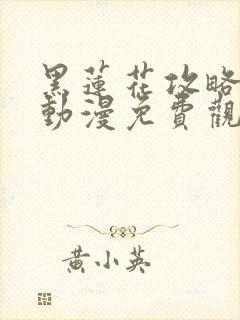 黑蓮花攻略
動漫免費觀
黃小英